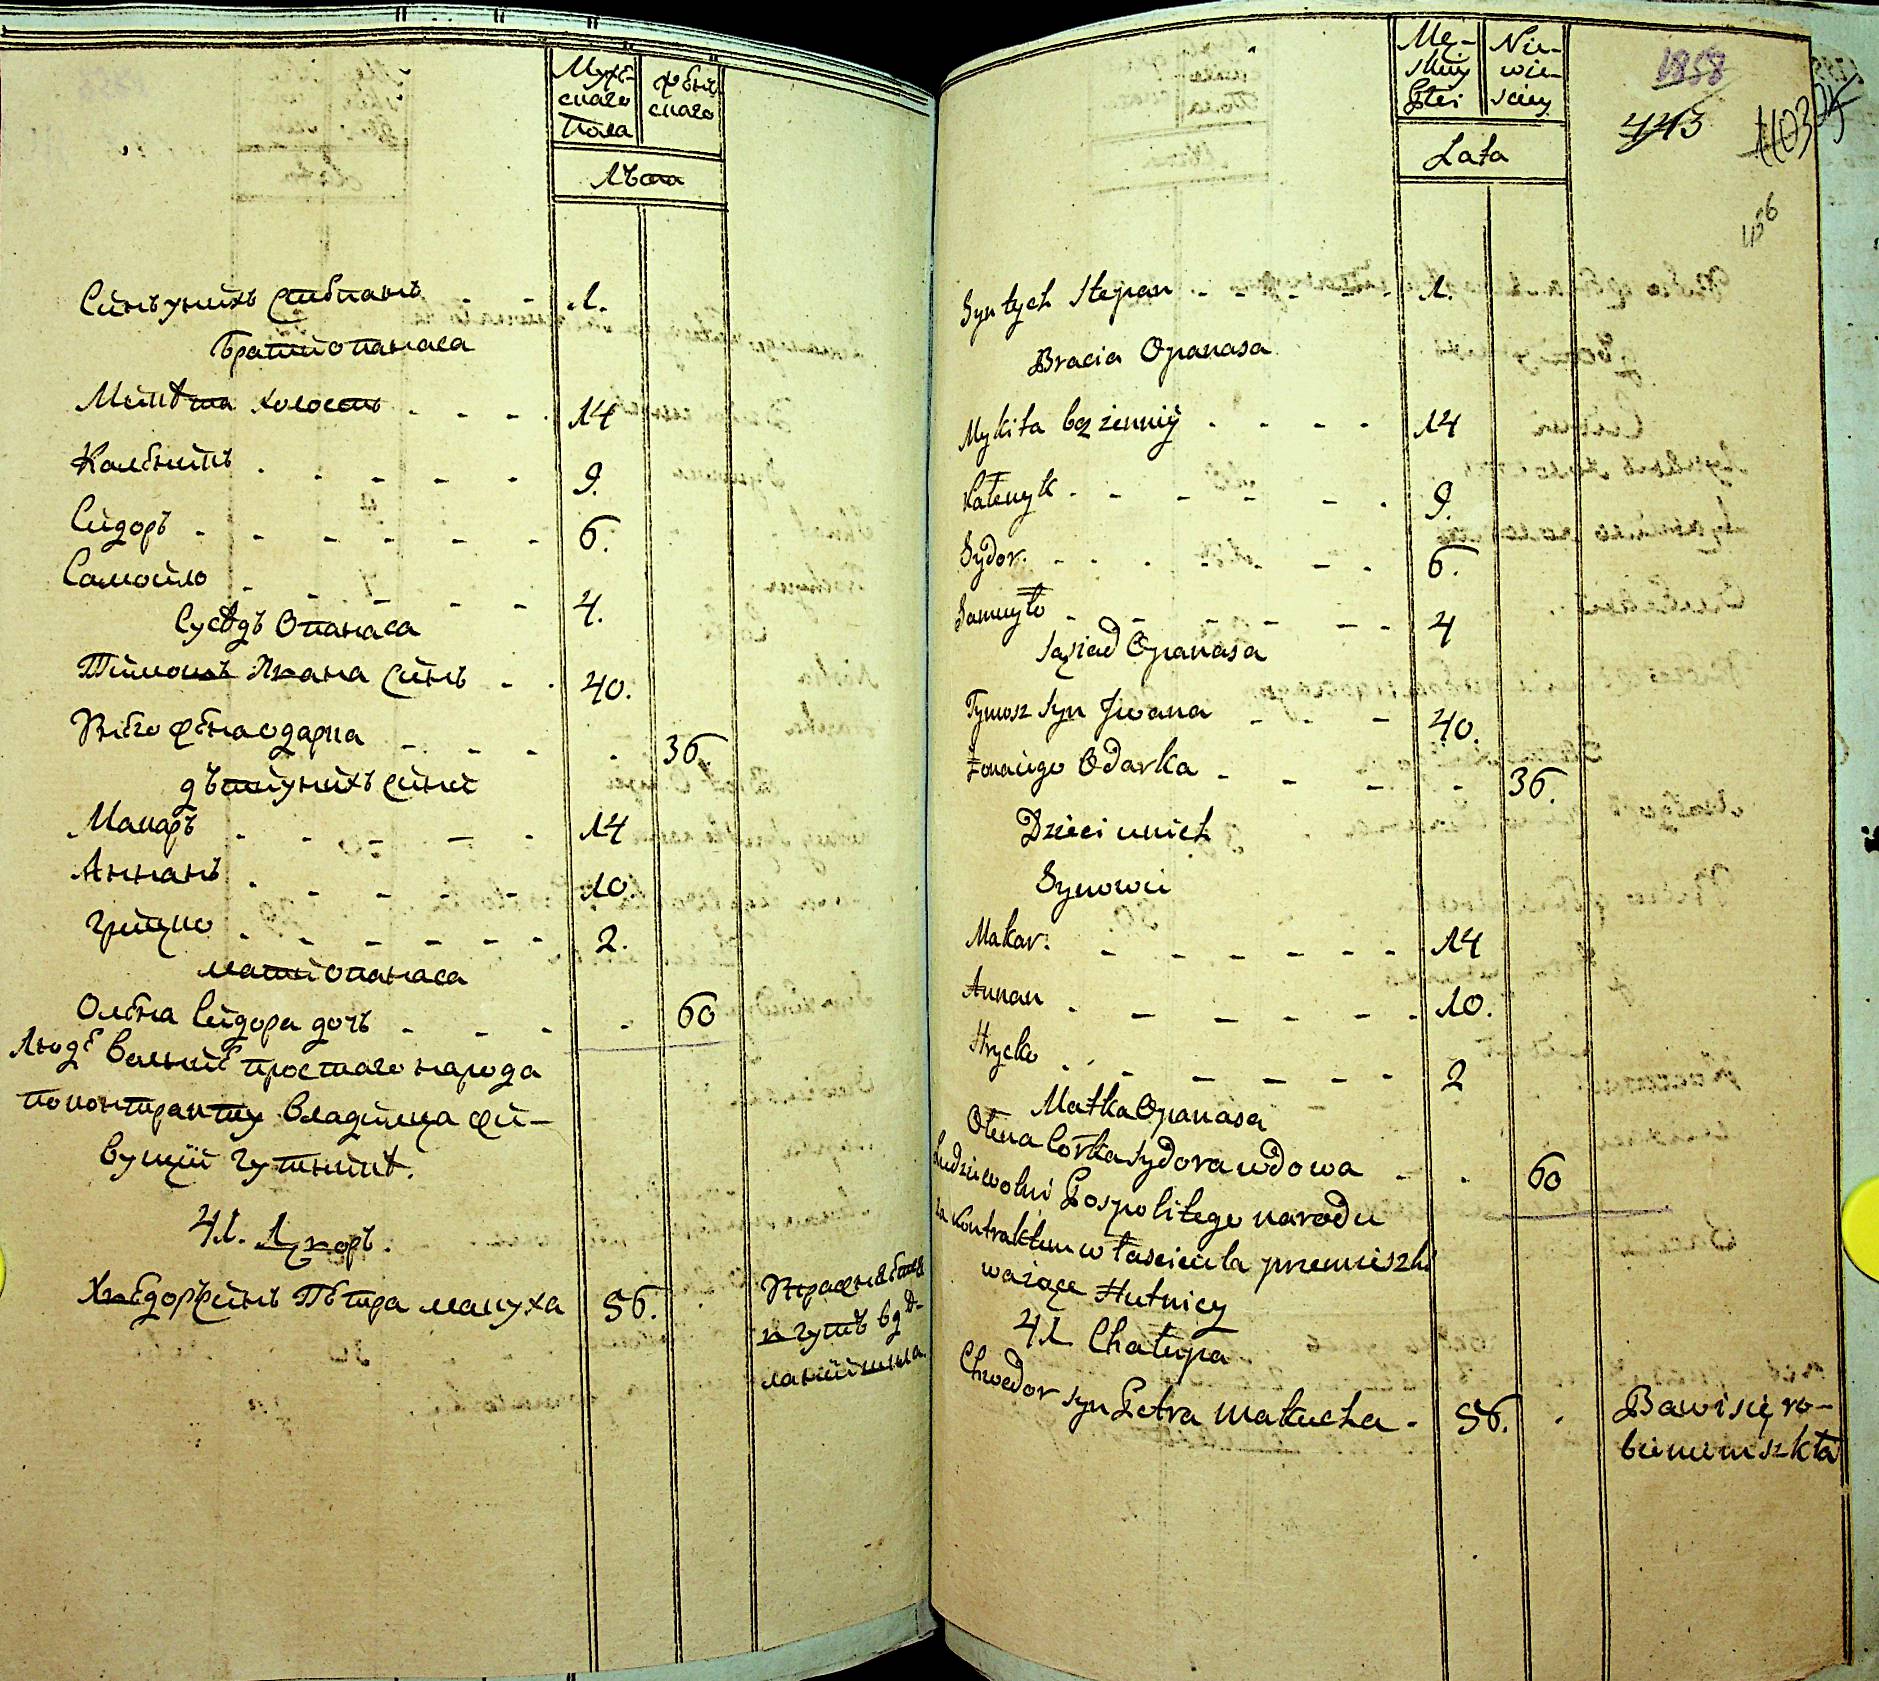 Мужескаго Пола
Женскаго
Лѣта
Синъ у нихъ Стѣпанъ 1.
Братїи Опанаса
Микѣта холостъ 14
Калѣникъ 9.
Сидоръ 6.
Самойло 4.
Сусѣдъ Опанаса
Тимошъ Ивана Синъ 40.
Его жена Одарка 36.
дѣти у нихъ Сини
Макаръ 14
Аннанъ 10.
Грицко 2.
мати Опанаса
Олена Сидора дочь 60
Люде Волнїе простаго народа
по контракту Владѣлца жи-
вущїи Гутники.
41. Двор.
Хведоръ синъ Петра макуха 56.
Męskiy Płei
Niewiesciey
Lata
1858
443
456
Syn tych Stepan 1.
Bracia Opanasa
Mykita bezżenniy 14
Kałenyk 9.
Sydor. 6.
Samuyło 4
Sąsiad Opanasa
Tymosz syn Jwana 40.
Żona iego Odarka 36.
Dzieci u nich
Synowie
Makar. 14
Annan 10.
Hrycko 2
Matka Opanasa
Ołena Corka Sydora wdowa 60
Ludzie wolni Pospolitego narodu
za Kontraktem właściciela przemieszki
waiące Hutnicy
41 Chałupa
Chwedor syn Petra Makucha 56.
Bawi się ro-
bieniem szkła